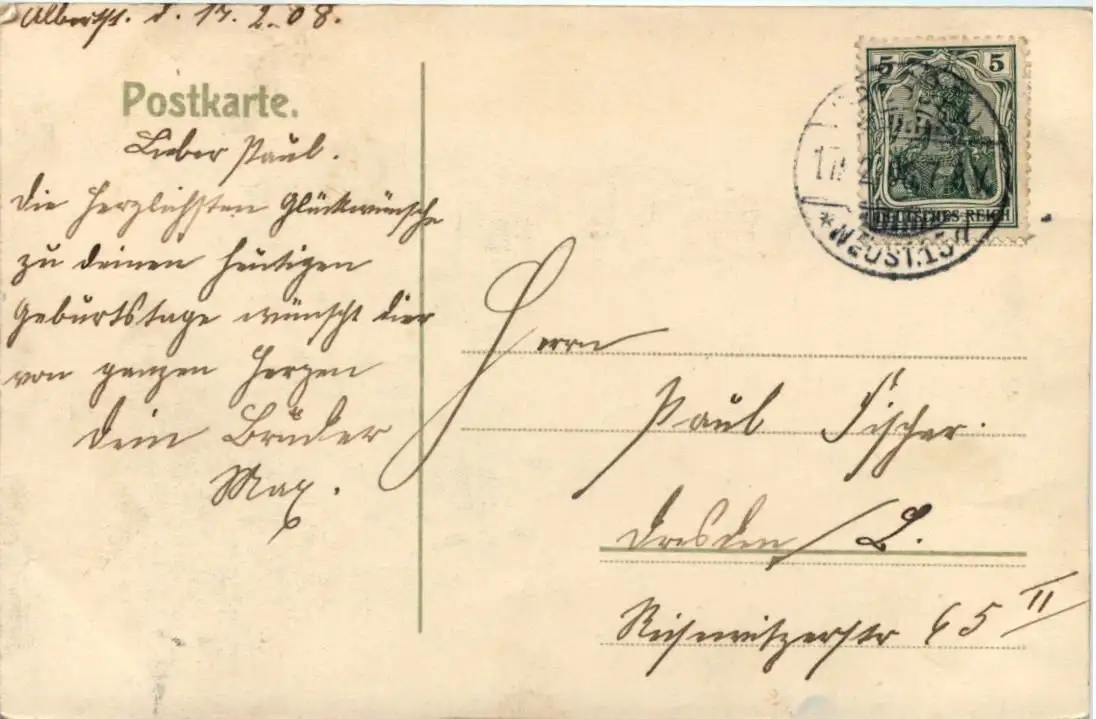 Albertst. d. 17. 2. 08.
Postkarte.
Lieber Paul.
Die herzlichsten Glückwünsche
zu deinen heutigen
Geburtstage wünscht dier
von ganzen Herzen
dein Bruder
Max.
5 5
DEUTSCHES REICH
*NEUST.15d
Herrn
Paul Fischer.
Dresden / L.
65 II